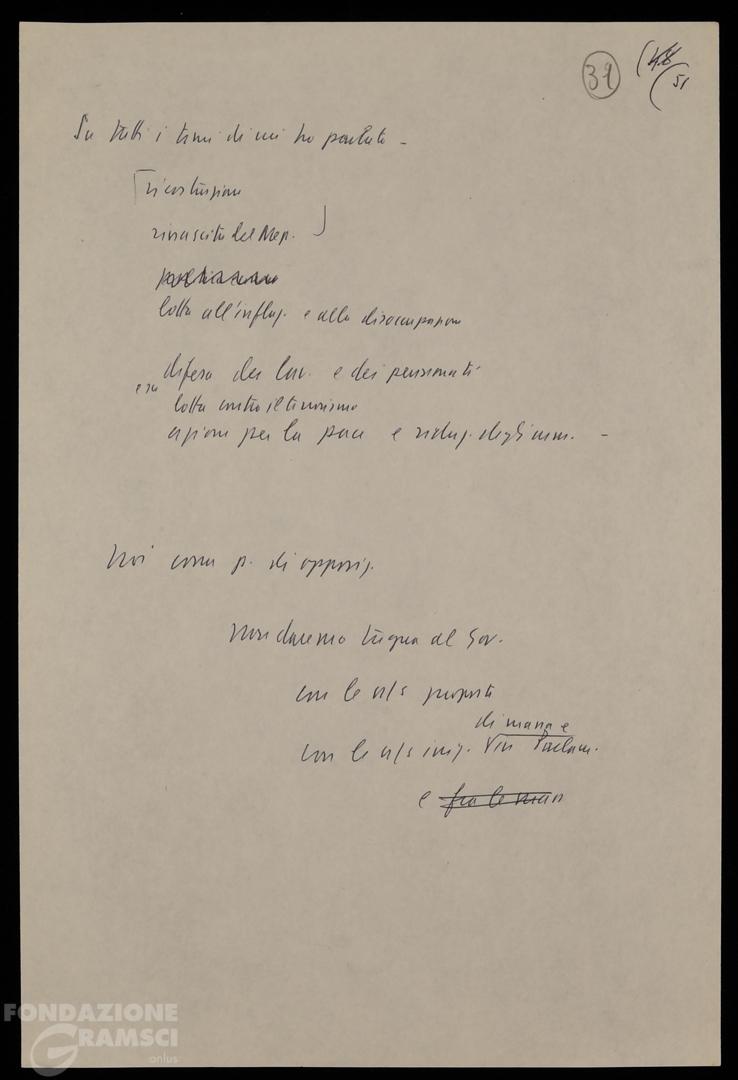 31 48 51
Su tutti i temi di cui ho parlato –
ricostruzione
rinascita del Mez.
lotta all'inflaz. e alla disoccupazione
difesa dei lav. e dei pensionati
e su
lotta contro il terrorismo
azione per la pace e riduz. degli arm. –
Noi come p. di opposiz.
Non daremo tregua al Gov.
con le n/s proposte
di massa e
con le n/s iniz. in Parlam.
e fra le mas
FONDAZIONE
GRAMSCI
onlus